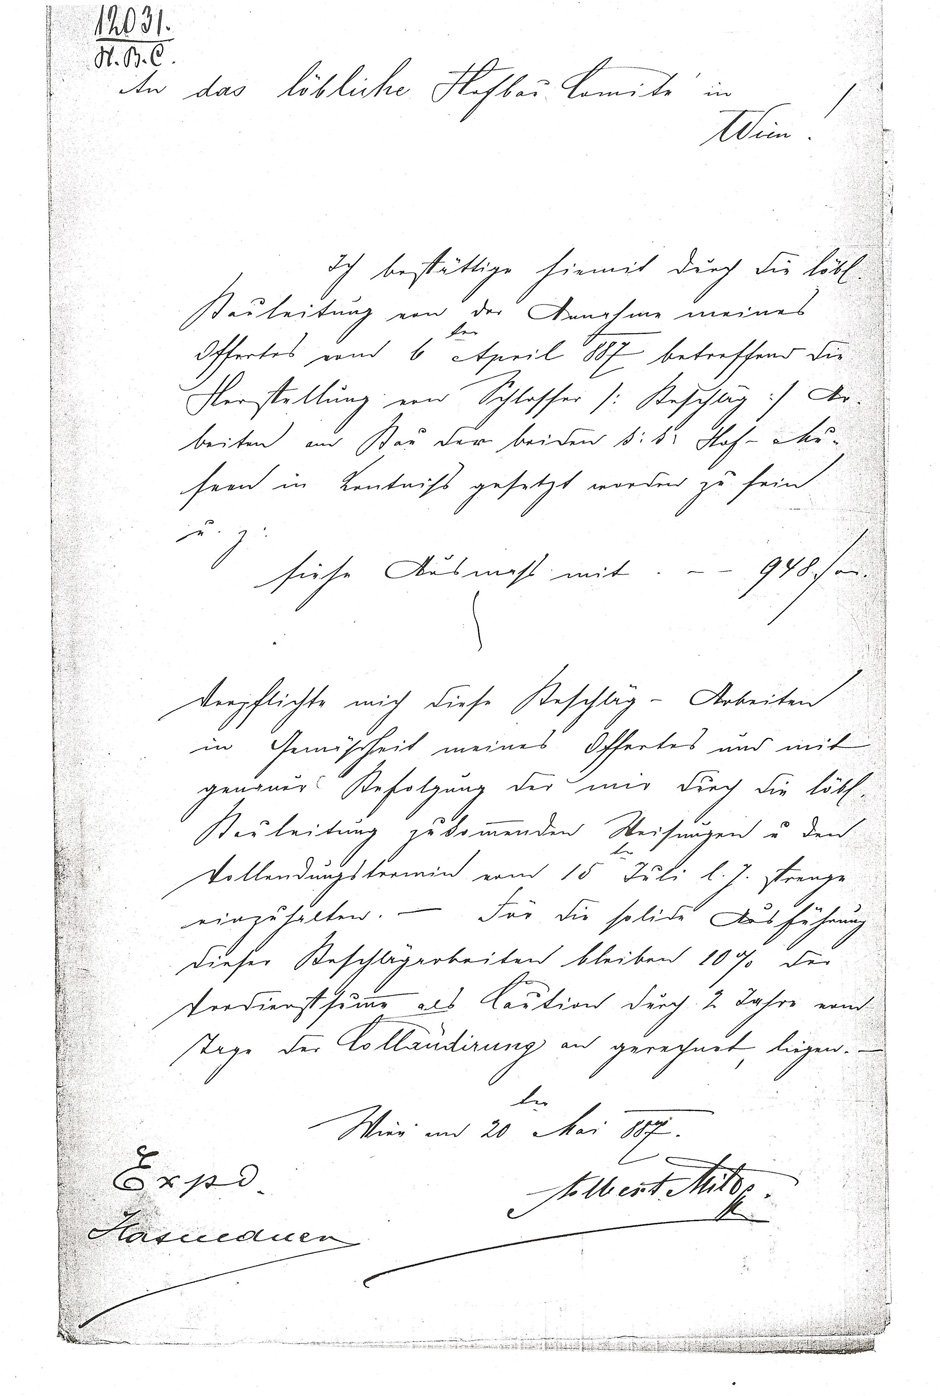 12031.
H.B.C.
An das löbliche Hofbau Comité in
Wien!
Ich bestättige hiemit durch die löbl.
Bauleitung von der Annahme meines
Offertes vom 6 ten April 887 betreffend die
Herstellung von Schlosser /: Beschläg :/ Ar-
beiten am Bau der beiden k: k: Hof- Mu-
seen in Kentniss gesetzt worden zu sein
u. z:
siehe Ausmass mit . – – 948
Verpflichte mich diese Beschläg- Arbeiten
in Gemäßheit meines Offertes und mit
genauer Befolgung der mir durch die löbl.
Bauleitung zukommenden Weisungen u den
Vollendungstermin vom 15 ten Juli l. J. strenge
einzuhalten. — Für die solide Ausführung
dieser Beschlägarbeiten bleiben 10% der
Verdienstsumme als Caution durch 2 Jahre vom
Tage der Collaudirung an gerechnet, liegen. —
Wien am 20 ten Mai 887.
Albert Milde
Expd.